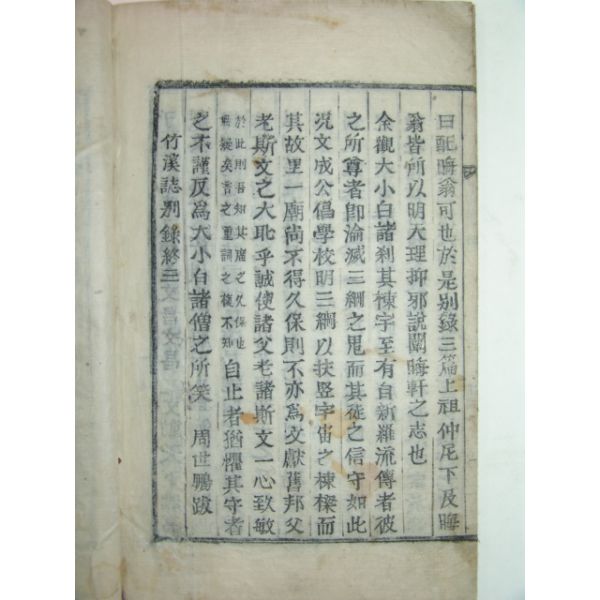 曰配晦翁可也於是別錄三篇上祖仲尼下及晦
翁皆所以明大理抑邪說闢晦軒之志也
余觀大小白諸刹其棟宇至有自新羅流傳者彼
之所尊者卽淪滅三綱之鬼而其徒之信守如此
況文成公倡學校明三綱以扶竪宇宙之棟樑而
其故里一廟尙不得久保則不亦爲文獻舊邦父
老斯文之大耻乎誠使諸父老諸斯文一心致敏
於此則吾知其廟之久保也
無疑矣言之重詞之複不知
自止者猶懼其守者
之不謹反爲大小白諸僧之所笑 周世鵬跋
竹溪誌別錄終三